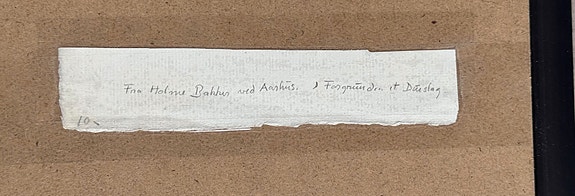 Fra Holme Bakker ved Aarhus. I Forgrunden et Dueslag
10.